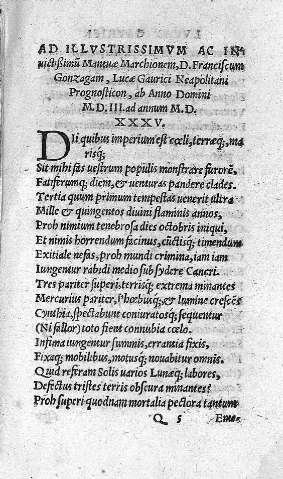 AD ILLVSTRISSIMVM AC IN
uictissimũ Mantuæ Marchionem, D. Franciscum
Gonzagam, Lucæ Gaurici Neapolitani
Prognosticon, ab Anno Domini
M.D.III. ad annum M.D.
XXXV.
Dii quibus imperium est cœli, terræq;, ma
risq;
Sit mihi fas uestrum populis monstrare furorẽ,
Fatiferumq; diem, & uenturas pandere clades.
Tertia quum primum tempestas uenerit ultra
Mille & quingentos diuini flaminis annos,
Proh nimtum tenebrosa dies octobris iniqui,
Et nimis horrendum facinus, cũctisq; timendum
Exitiale nefas, proh mundi crimina, iam iam
Iungentur rabidi medio sub sydere Cancri.
Tres pariter superi, terrisq; extrema minantes
Mercurius pariter, Phœbusq;, & lumine crescẽs
Cynthia, spectabunt coniuratosq; sequentur
(Ni fallor) toto fient connubia cœlo.
Infima iungentur summis, errantia fixis,
Fixaq; mobilibus, motusq; nouabitur omnis.
Quid referam Solis varios Lunæq; labores,
Defectus tristes terris obscura minantes?
Proh superi quodnam mortalia pectora tantum
Q 5